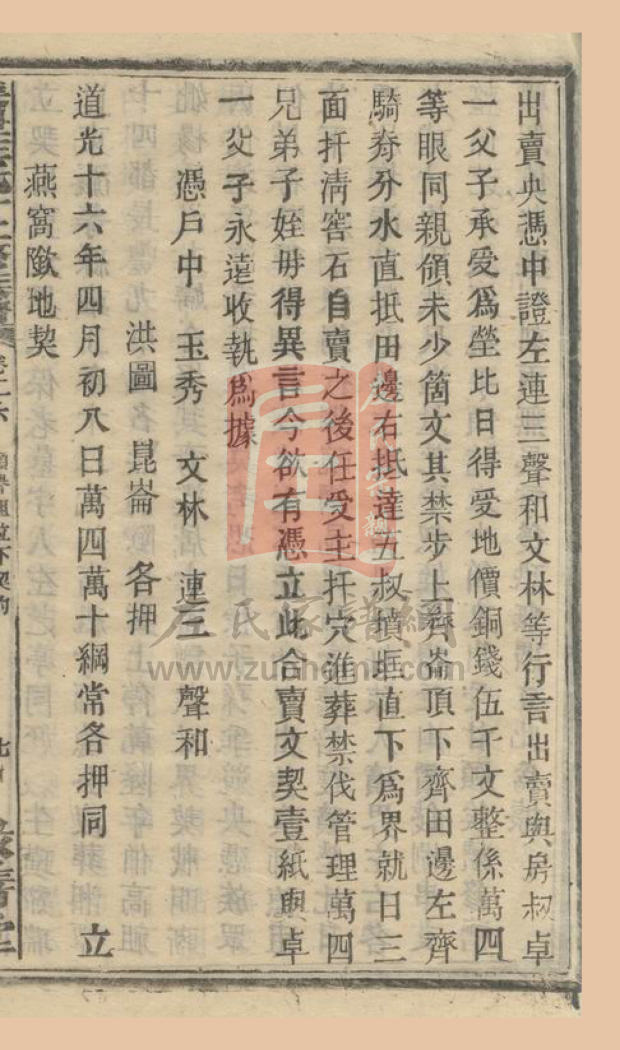 出賣央憑中證左連三聲和文林等行言出賣與房叔卓
一父子承受爲塋比日得受地價銅錢伍千文整係萬四
等眼同親領未少箇文其禁步上齊崙頂下齊田邊左齊
騎脊分水直抵田邊右抵達五叔墳眶直下爲界就日三
面扦清窖石自賣之後任受主扦穴進葬禁伐管理萬四
兄弟子姪毋得異言今欲有憑立此合賣文契壹紙與卓
一父子永遠收執爲據
憑戶中 玉秀 文林 連三 聲和
洪圖 崑崙 各押
道光十六年四月初八日萬四萬十綱常各押同 立
燕窩歟地契
www.zunhome.com